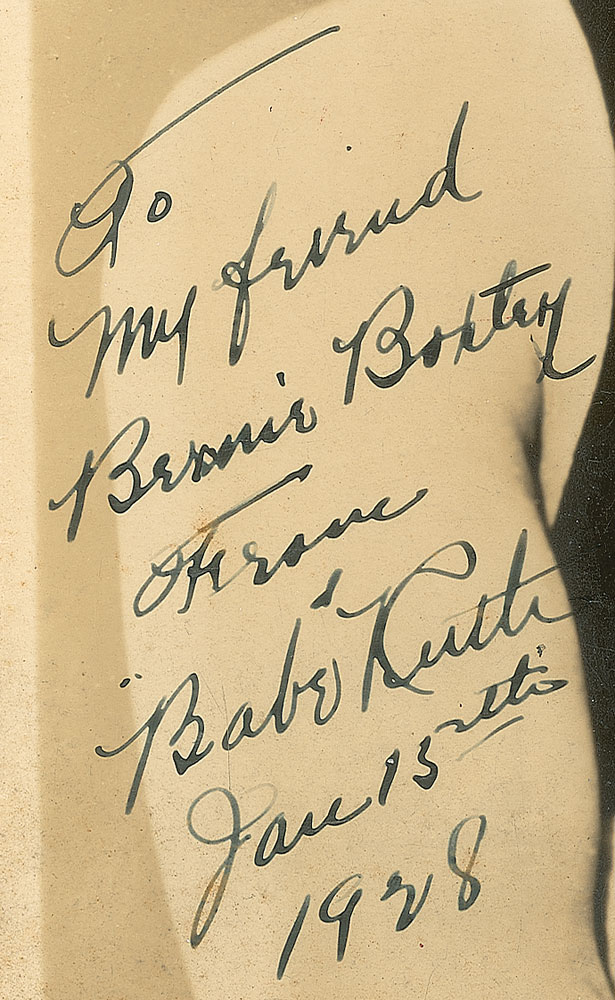 To
My friend
Bernie
From
"Babe" Ruth
Jan 15th
1928